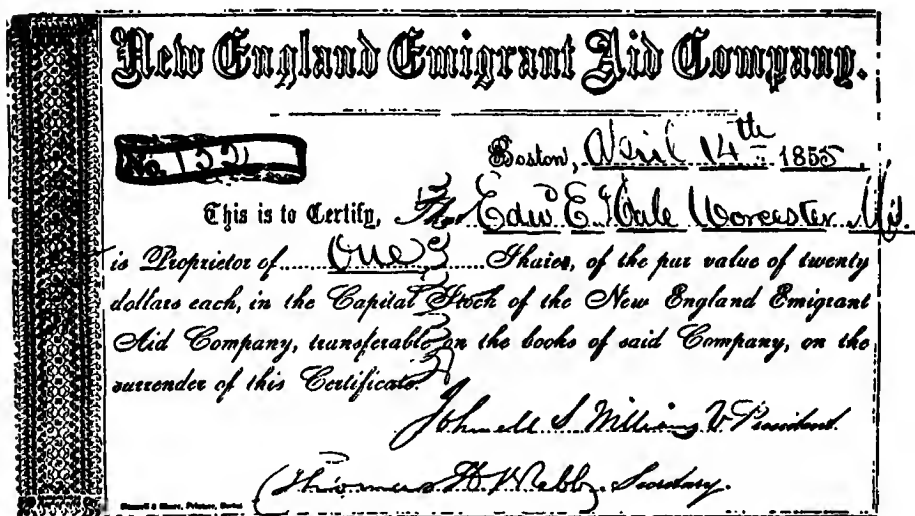 New England Emigrant Aid Company.
No. 155
Boston, April 14th 1855
This is to Certify, That Edwd E. Hale Worcester Ms.
is Proprietor of One Shares, of the par value of twenty
dollars each, in the Capital Stock of the New England Emigrant
Aid Company, transferable on the books of said Company, on the
surrender of this Certificate.
S. Williams V. President.
Thomas H. Webb, Secretary.
Printers, Boston